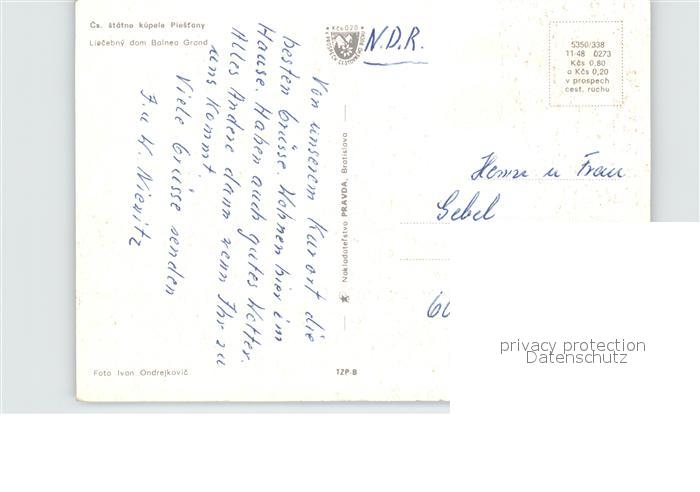 Čs. štátne kúpele Piešťany
Liečebný dom Balnea Grand
Kčs 0,20
N.D.R.
5350/338
11-48 0273
Kčs 0,80
a Kčs 0,20
v prospech
cest. ruchu
Von unserem Kurort die
besten Grüsse. Wohnen hier im
Hause. Haben auch gutes Wetter.
Alles Andere dann wenn Ihr zu
uns kommt.
Viele Grüsse senden
J. u. W. Niemitz
Nakladateľstvo PRAVDA, Bratislava
Herrn u Frau
Gebel
60
privacy protection
Datenschutz
Foto Ivan Ondrejkovič
TZP-B